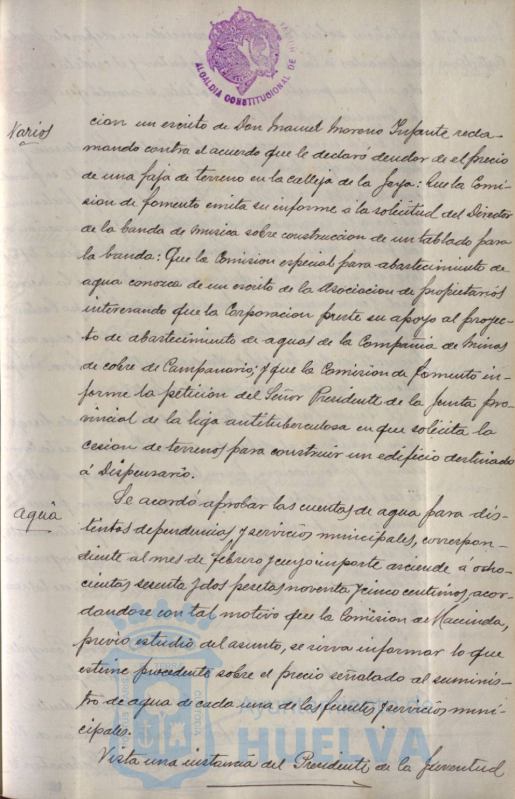 ALCALDIA CONSTITUCIONAL DE
Varios
cion un escrito de Don Manuel Moreno Infante recla-
mando contra el acuerdo que le declaró deudor de el precio
de una faja de terreno en la calleja de la Joya: Que la Comi-
sion de fomento emita su informe á la solicitud del Director
de la banda de musica sobre construccion de un tablado para
la banda: Que la Comision especial para abastecimiento de
agua conozca de un escrito de la Asociacion de propietarios
interesando que la Corporacion preste su apoyo al proyec-
to de abastecimiento de aguas de la Compañia de Minas
de cobre de Campanario; y que la Comision de fomento in-
forme la petición del Señor Presidente de la Junta pro-
vincial de la liga antituberculosa en que solicita la
cesion de terrenos para construir un edificio destinado
á Dispensario.
agua
Se acordó aprobar las cuentas de agua para dis-
tintas dependencias y servicios municipales, correspon-
diente al mes de febrero y cuyo importe asciende á ocho-
cientas sesenta y dos pesetas noventa y cinco centimos, acor-
dandose con tal motivo que la Comision de Hacienda,
previo estudio del asunto, se sirva informar lo que
estime procedente sobre el precio señalado al suminis-
tro de agua de cada una de las fuentes y servicios muni-
cipales.
Vista una instancia del Presidente de la Juventud
Ayuntamiento de
HUELVA